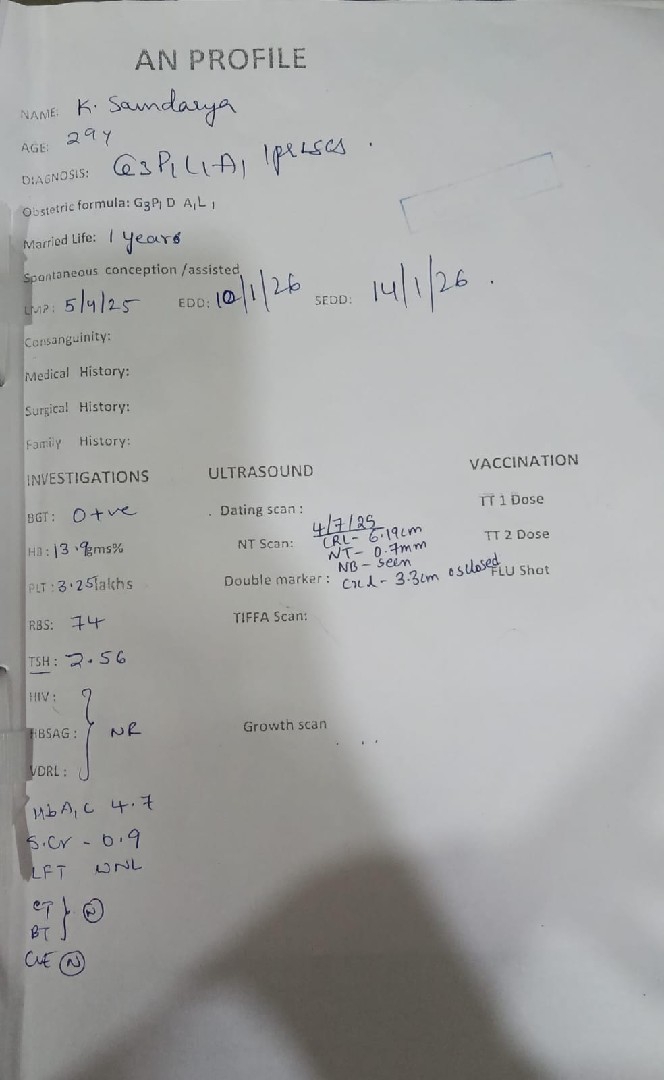 AN PROFILE
NAME: K. Saundarya
AGE: 29 Y
DIAGNOSIS: G3P1L1A1 1 pr LSCS.
Obstetric formula: G3P1 D A1L1
Married Life: 1 years
Spontaneous conception /assisted
LMP: 5/4/25 EDD: 10/1/26 SEDD: 14/1/26.
Consanguinity:
Medical History:
Surgical History:
Family History:
INVESTIGATIONS ULTRASOUND VACCINATION
BGT: O+ve
HB: 13.9gms%
PLT: 3.25lakhs
RBS: 74
TSH: 2.56
HIV:
HBSAG: NR
VDRL:
HbA1C 4.7
S.Cr - 0.9
LFT WNL
CT
BT N
CUE N
Dating scan:
4/7/25
NT Scan: CRL- 6.19cm
NT- 0.7mm
NB- seen
Double marker: Cxl- 3.3cm os closed
TIFFA Scan:
Growth scan
TT 1 Dose
TT 2 Dose
FLU Shot